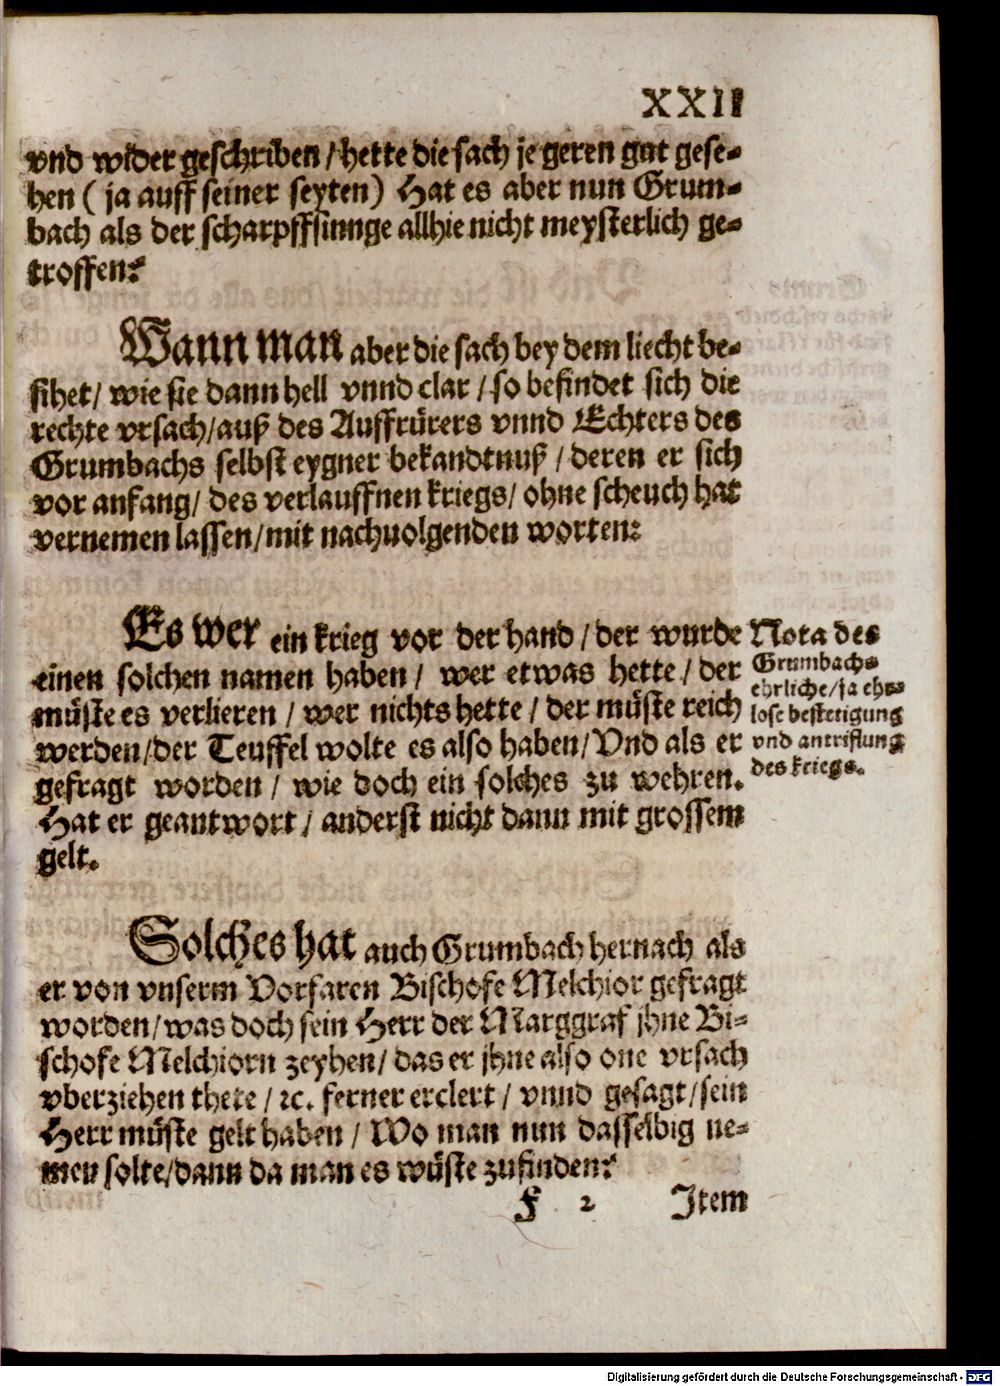 XXII
vnd wider geschriben / hette die sach je geren gut gese-
hen ( ja auff seiner seyten) Hat es aber nun Grum-
bach als der scharpffsinnge allhie nicht meysterlich ge-
troffen?
Wann man aber die sach bey dem liecht be-
sihet / wie sie dann hell vnnd clar / so befindet sich die
rechte vrsach / auß des Auffrürers vnnd Echters des
Grumbachs selbst eygner bekandtnuß / deren er sich
vor anfang / des verlauffnen kriegs / ohne scheuch hat
vernemen lassen / mit nachuolgenden worten:
Es wer ein krieg vor der hand / der wurde
einen solchen namen haben / wer etwas hette / der
müste es verlieren / wer nichts hette / der müste reich
werden / der Teuffel wolte es also haben / Vnd als er
gefragt worden / wie doch ein solches zu wehren.
Hat er geantwort / anderst nicht dann mit grossem
gelt.
Nota des
Grumbachs
ehrliche / ja ehr-
lose bestetigung
vnd antrifftung
des kriegs.
Solches hat auch Grumbach hernach als
er von vnserm Vorfaren Bischofe Melchior gefragt
worden / was doch sein Herr der Marggraf jhne Bi-
schofe Melchiorn zeyhen / das er jhne also one vrsach
vberziehen thete / ꝛc. ferner erclert / vnnd gesagt / sein
Herr müste gelt haben / Wo man nun dasselbig ne-
men solte / dann da man es wüste zufinden?
F 2 Item
Digitalisierung gefördert durch die Deutsche Forschungsgemeinschaft - DFG